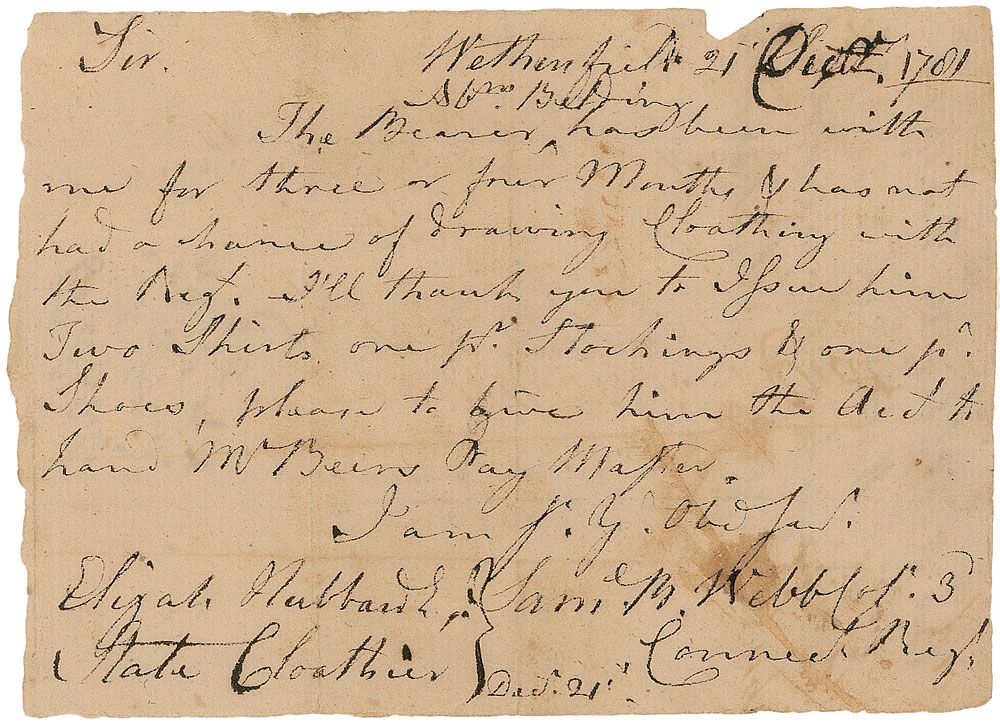 Sir. Wethersfield 21st Decr. 1781
Abm. Belding
The Bearer has been with
me for three or four Months & has not
had a chance of drawing Cloathing with
the Regt. I'll thank you to Issue him
Two Shirts, one pr. Stockings & one pr.
Shoes, please to give him the Acct to
hand Mr Beers Pay Master.
I am Sr. Yr. Obd Servt.
Elizah Hubbard Saml. B. Webb Col. 3d
State Cloathier Connect. Regt.
Decr. 21st.